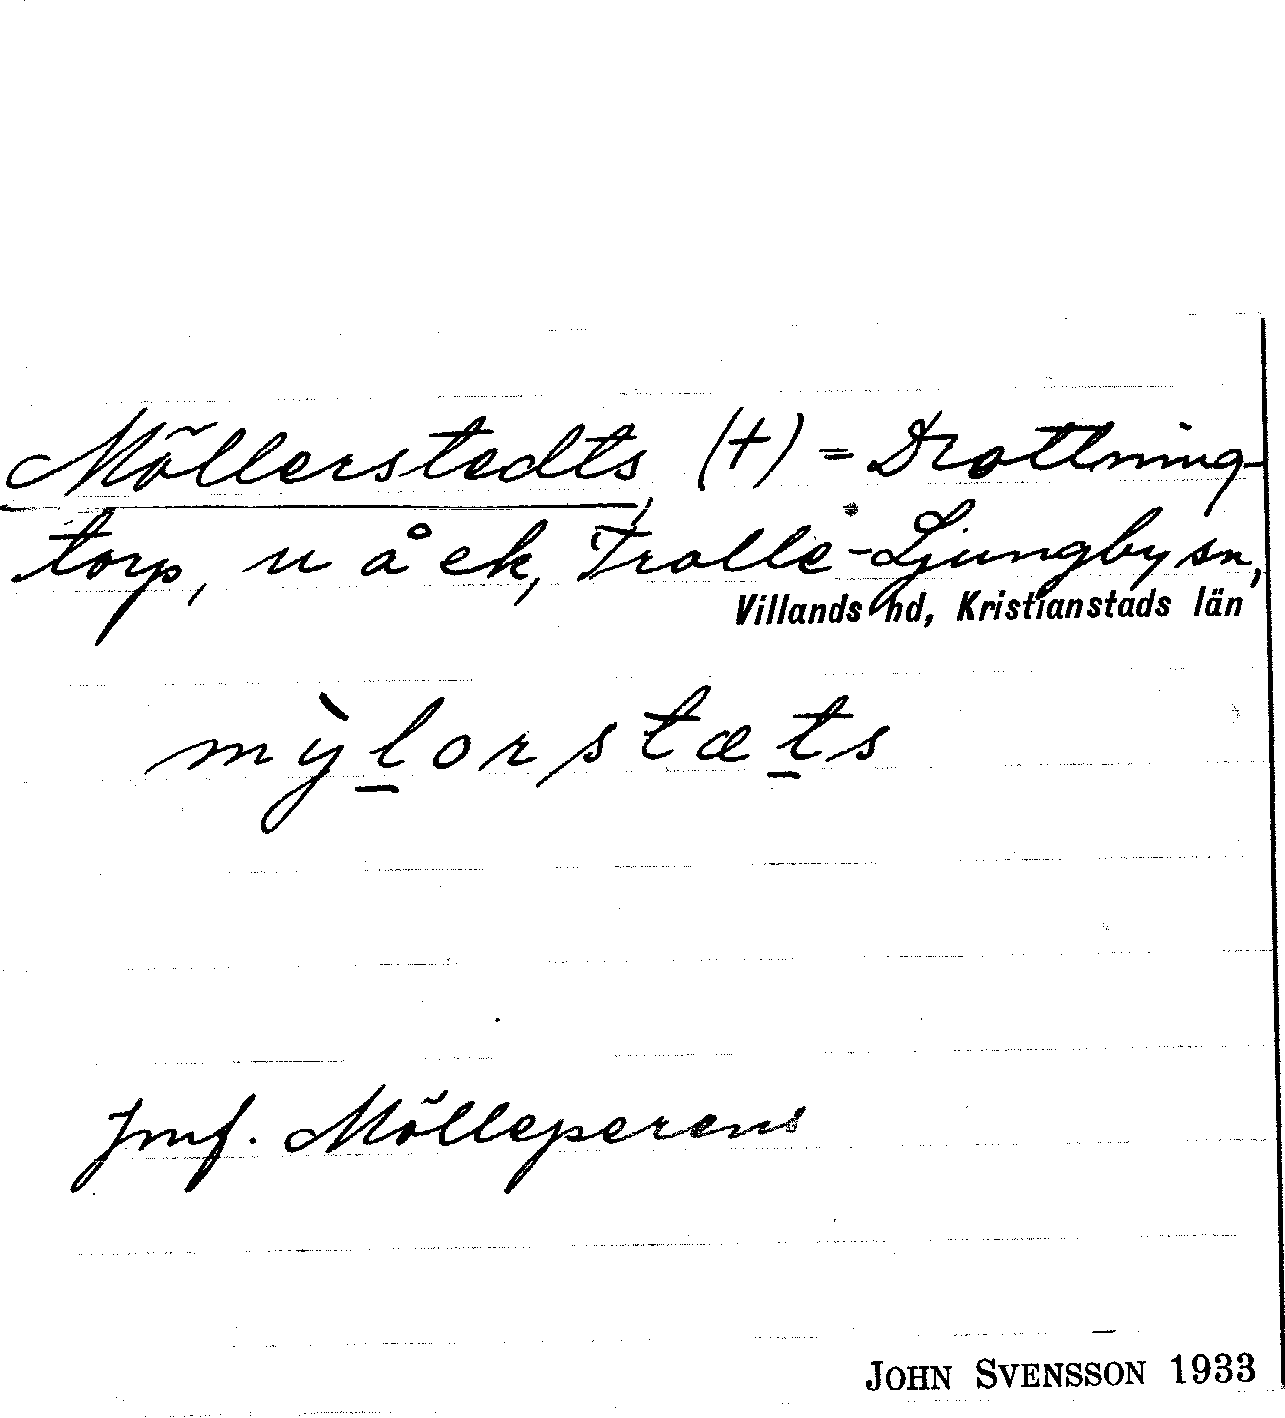 Möllerstedts, (†) = Drottning-
torp, u å ek, Trolle-Ljungby sn,
Villands hd, Kristianstads län
mỳl̲orstæt̲s
Jmf. Mölleperens
JOHN SVENSSON 1933